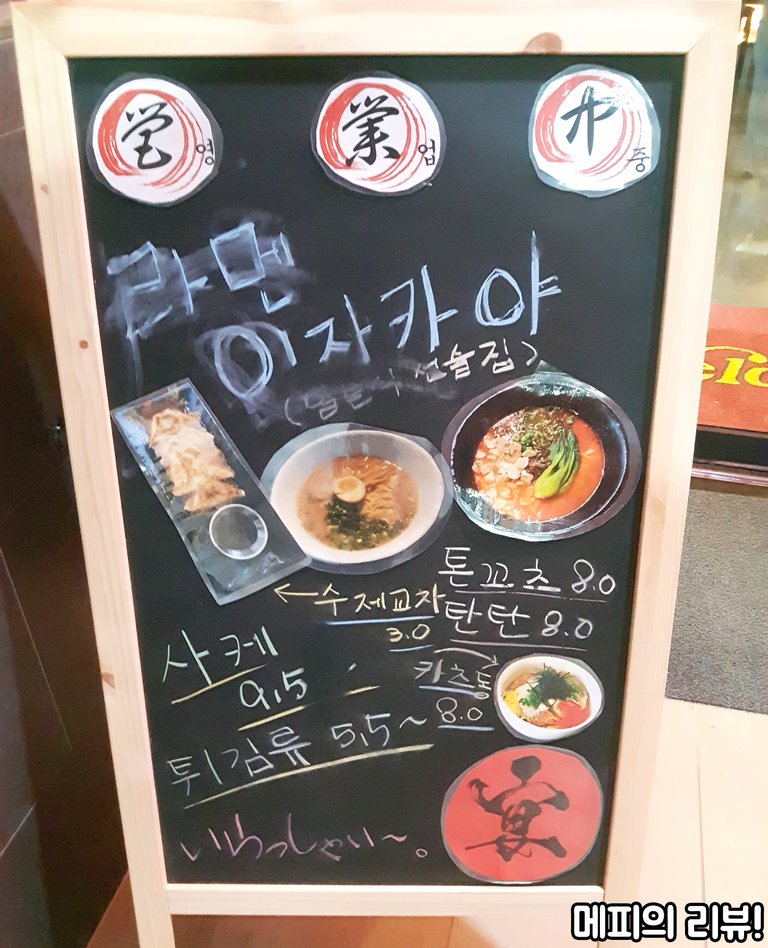 営 영 業 업 中 중
라멘
이자카야
(일본식 선술집)
톤꼬츠 8.0
←수제교자 탄탄 8.0
3.0
사케 카츠동
9.5 8.0
튀김류 5.5~
宴
いらっしゃい~。
메피의 리뷰!